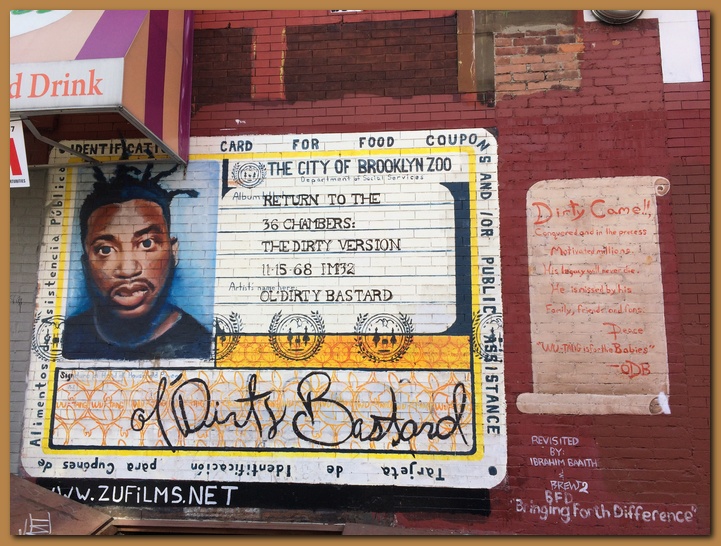 d Drink
IDENTIFICATI CARD FOR FOOD COUPONS AND /OR PUBLIC ASSISTANCE
THE CITY OF BROOKLYN ZOO
Department of Social Services
Album
RETURN TO THE
36 CHAMBERS:
THE DIRTY VERSION
11-15-68 1M32
Artist name here:
OL'DIRTY BASTARD
Sig
ol' Dirty Bastard
Tarjeta de Identificación para Cupones de
Alimentos Asistencia Pública
WWW.ZUFILMS.NET
Dirty Came!!,
Conquered and in the process
Motivated millions.
His legacy will never die.
He is missed by his
Family, friends and fans.
Peace
"WU-TANG is for the Babies"
-ODB
REVISITED
BY:
IBRAHIM BAAITH
&
BREW2
BFD
"Bringing Forth Difference"